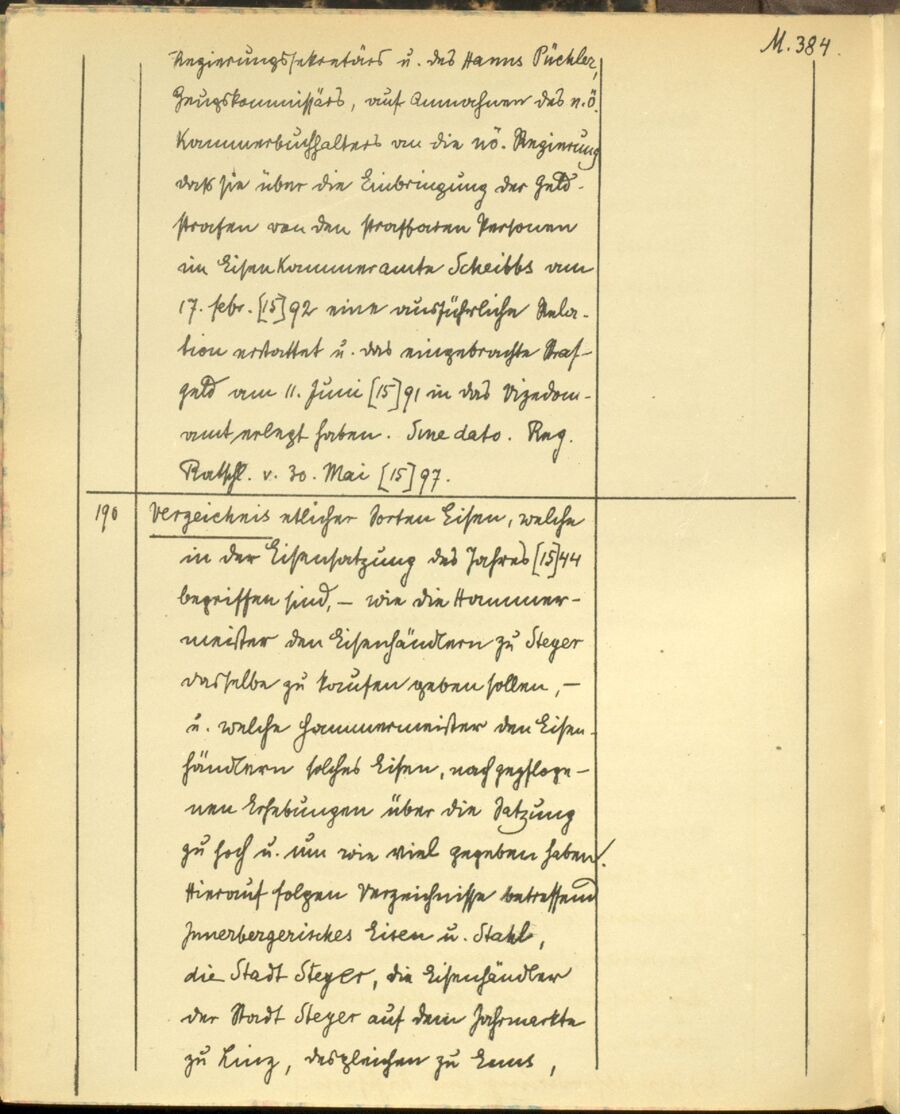 M. 384.
Regierungssekretärs u. des Hanns Püchler,
Zeugskommissärs, auf Anmahnen des n.ö.
Kammerbuchhalters an die nö. Regierung
daß sie über die Einbringung der Geld-
strafen von den strafbaren Personen
im Eisenkammeramte Scheibbs am
17. febr. [15]92 eine ausführliche Rela-
tion erstattet u. das eingebrachte Straf-
geld am 11. Juni [15]91 in das Vizedom-
amt erlegt haben. Sine dato. Reg.
Ratschl. v. 30. Mai [15]97.
190 Verzeichnis etlicher Sorten Eisen, welche
in der Eisensatzung des Jahres [15]44
begriffen sind, – wie die Hammer-
meister den Eisenhändlern zu Steyer
dasselbe zu kaufen geben sollen, –
u. welche Hammermeister den Eisen-
händlern solches Eisen, nach gepfloge-
nen Erhebungen über die Satzung
zu hoch u. um wie viel gegeben haben.
Hierauf folgen Verzeichnisse betreffend
Innerbergerisches Eisen u. Stahl,
die Stadt Steyer, die Eisenhändler
der Stadt Steyer auf dem Jahrmarkte
zu Linz, desgleichen zu Enns,